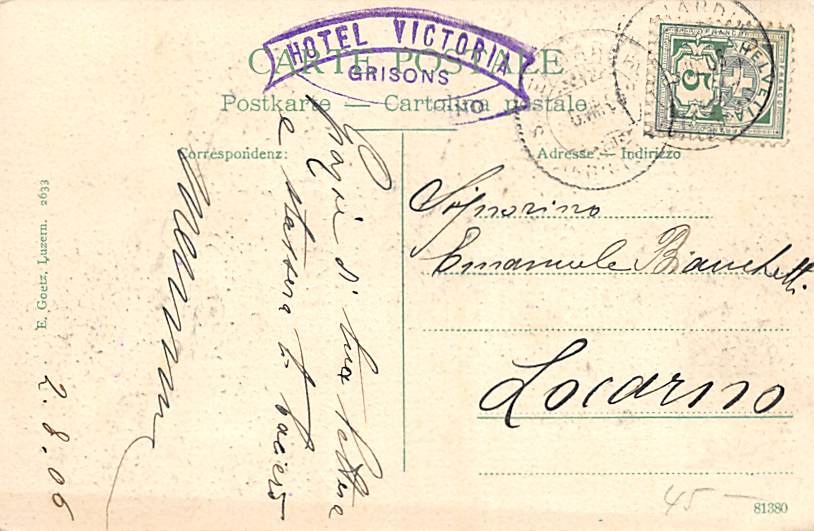 HOTEL VICTORIA
GRISONS
CARTE POSTALE
Postkarte — Cartolina postale
Correspondenz:
Adresse — Indirizzo
HELVETIA
5
Signorino
Emanuele Bianchetti
Locarno
Grazie di tua lettera
e stassera ti bacierò
2.8.06
E. Goetz, Luzern. 2633
45 —
81380